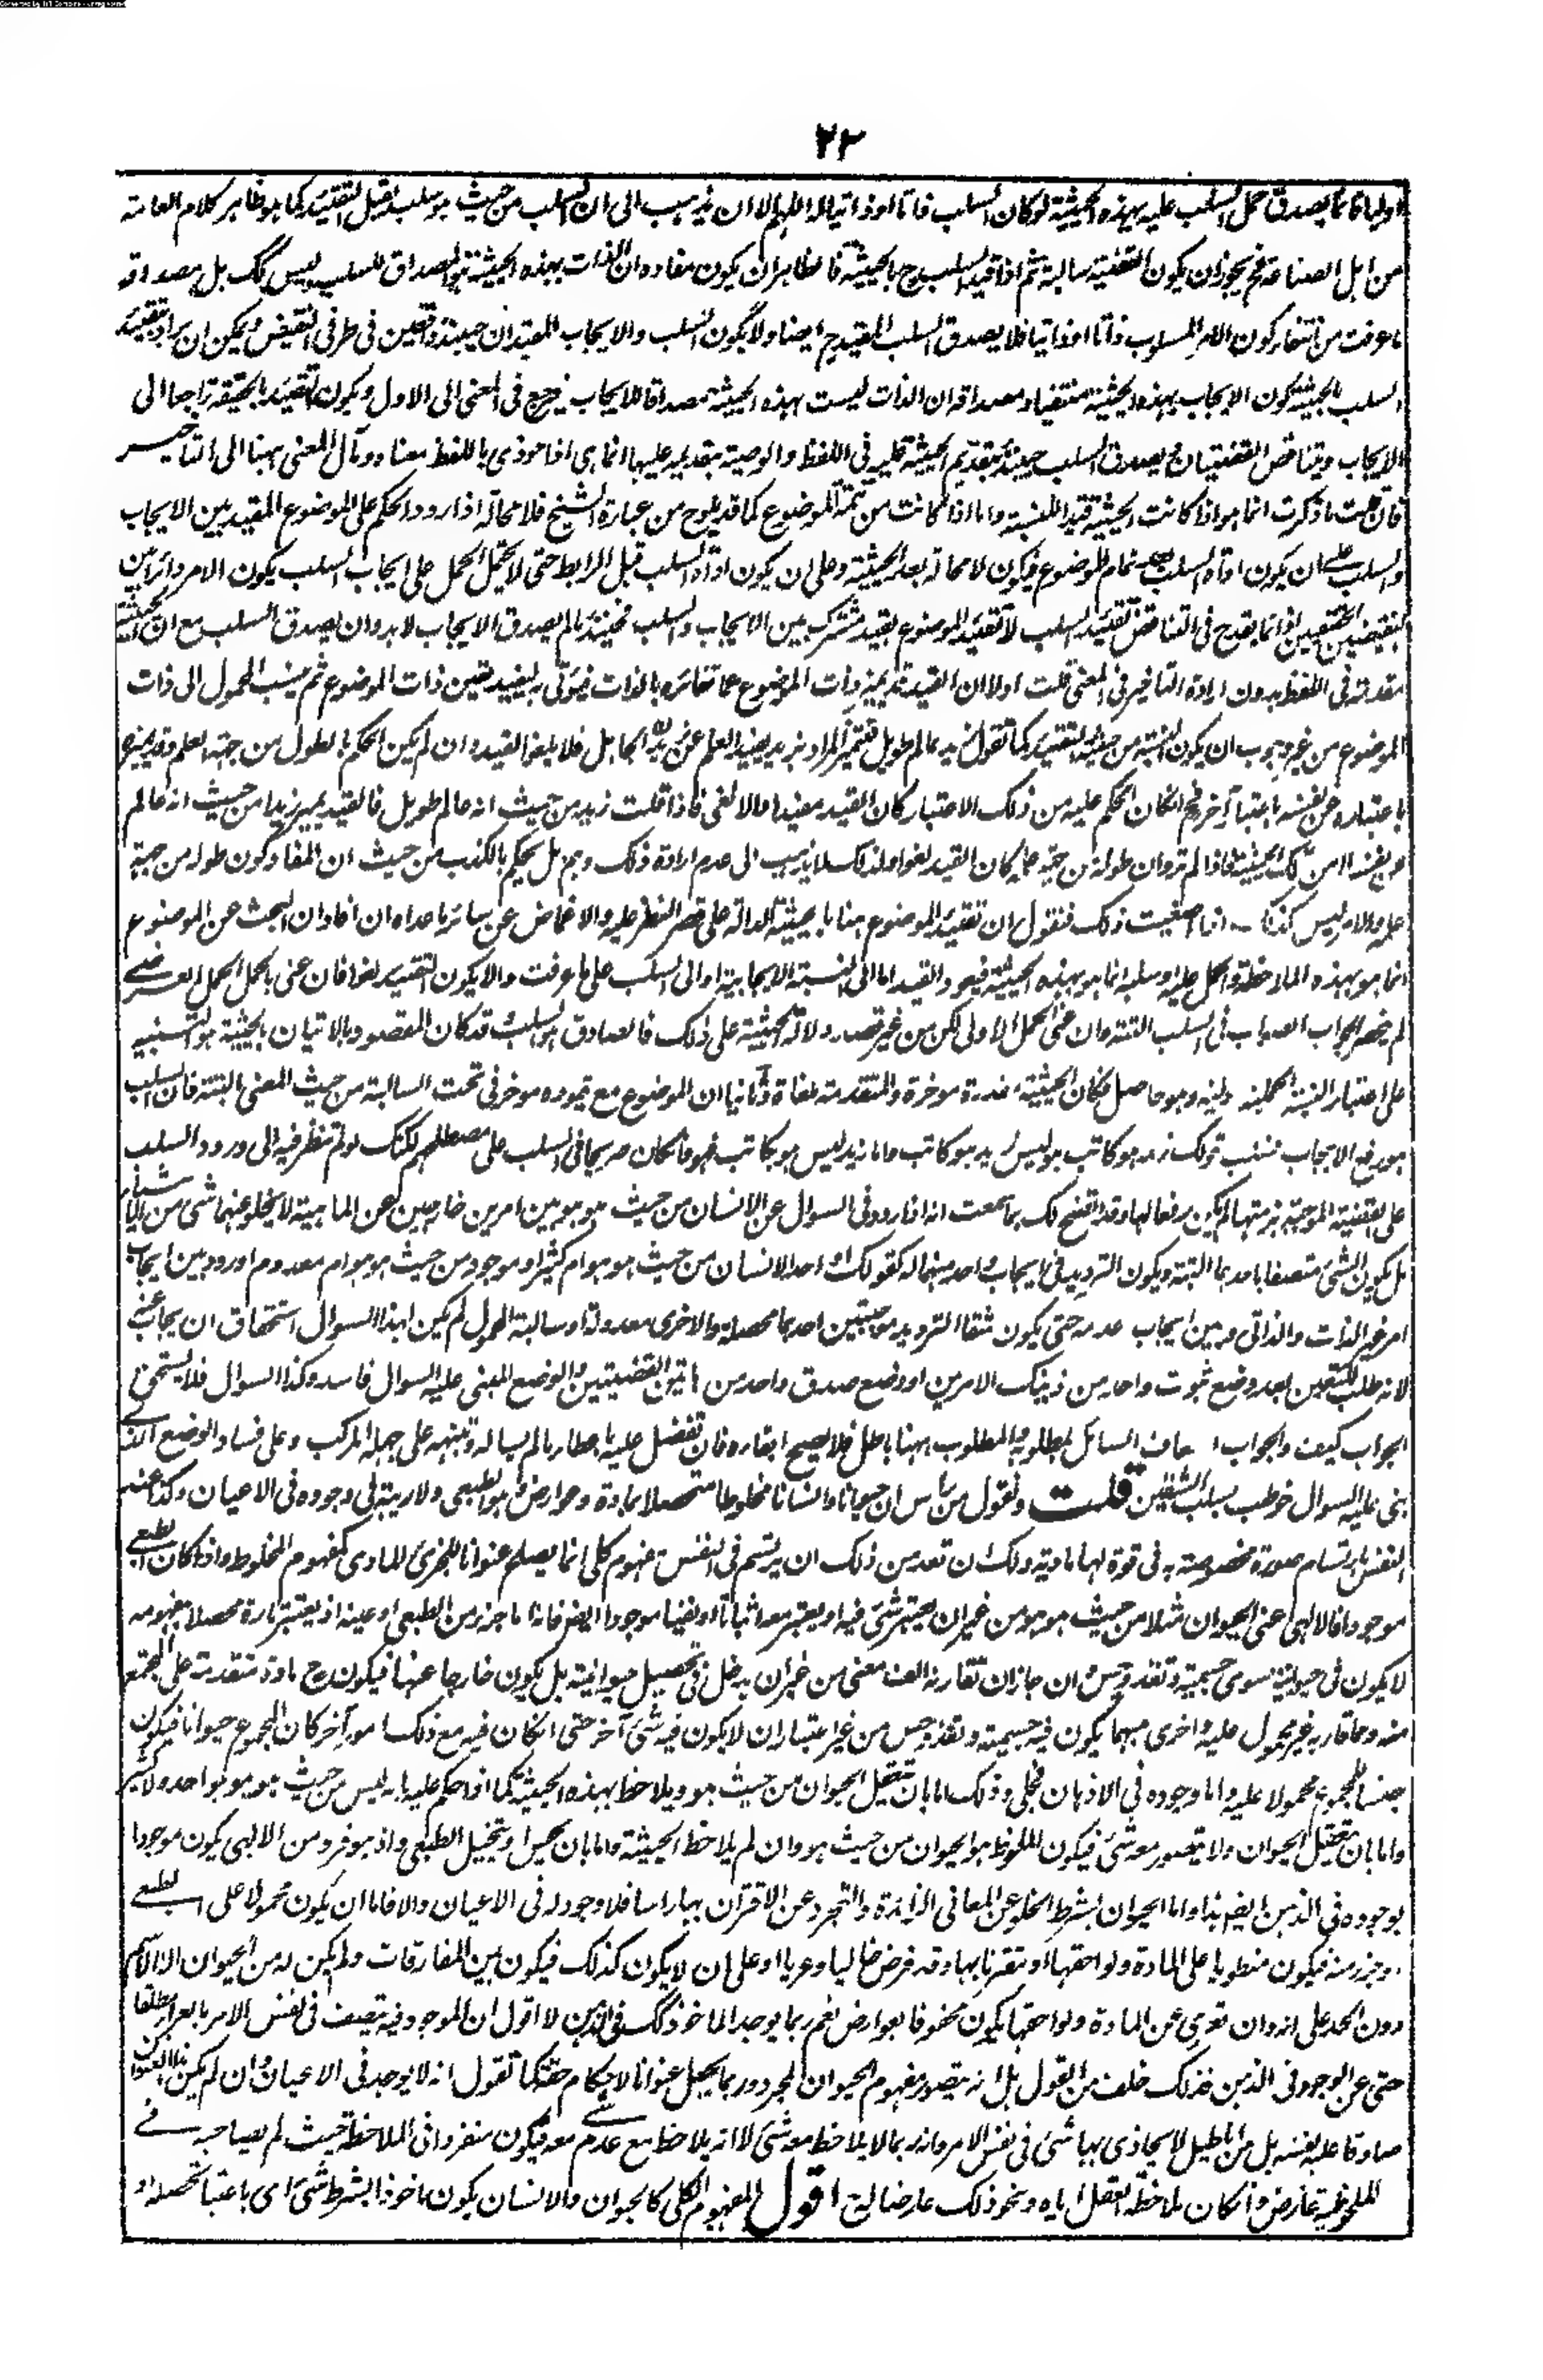 ٢٢
اوليا فانما يصدق حمل السلب عليه بهذه الحيثية لو كان السلب ذاتا او ذاتيا له اللهم الا ان يذهب الى ان السلب من حيث هو سلب يقبل التقييد كما هو ظاهر كلام العامة
من اهل الصناعة فح يجوز ان يكون القضية سالبة ثم اذا قيد السلب ح بالحيثية فالظاهر ان يكون مفاده ان الذات بهذه الحيثية هو المصداق للسلب وليس كك بل مصداقه
ما عرفت من انتفاء كون الامر المسلوب ذاتا او ذاتيا فلا يصدق السلب المقيد ح ايضا ولا يكون السلب والايجاب المقيدان حينئذ واقعين فى طرفى النقيض ويمكن ان يراد بتقييد
السلب بالحيثية كون الايجاب بهذه الحيثية منتفيا ومصداقه ان الذات ليست بهذه الحيثية مصداقا للايجاب فيرجع فى المعنى الى الاول ويكون التقييد بالحقيقة راجعا الى
الايجاب ويتناقض القضيتان فح يصدق السلب حينئذ بتقديم الحيثية عليه فى اللفظ والوصية بتقديمه عليها انما هى اذا حوذى باللفظ معناه ومآل المعنى ههنا الى التاخير
فان قلت ما ذكرت انما هو اذا كانت الحيثية قيدا للنسبة واما اذا كانت من تتمة الموضوع كما قد يلوح من عبارة الشيخ فلا محالة اذا ردد الحكم على الموضوع المقيد بين الايجاب
والسلب على ان يكون اداة السلب بعد تمام الموضوع فيكون لا محالة بعد الحيثية وعلى ان يكون اداة السلب قبل الرابط حتى لا يحتمل الحمل على ايجاب السلب يكون الامر دائرا بين
النقيضين الحقيقيين اذ انما يقدح فى التناقض تقييد السلب لا تقييد الموضوع بقيد مشترك بين الايجاب والسلب فحينئذ ما لم يصدق الايجاب لا بد وان يصدق السلب مع ان الحيثية
مقدمة فى اللفظ بدون ارادة التاخير فى المعنى قلت اولا ان القيد قد يميز ذات الموضوع عما تغائره بالذات فيؤتى به ليفيد تعين ذات الموضوع ثم ينسب المحمول الى ذات
الموضوع من غير وجوب ان يكون النسبة من حيثية التقييد كما تقول زيد العالم طويل فتميز المراد بزيد بقيد العلم عن زيد الجاهل فلا يلغو القيد وان لم يكن الحكم بالطول من جهة العلم وقد يميزه
باعتباره عن نفسه باعتبار آخر فح ان كان الحكم عليه من ذلك الاعتبار كان القيد مفيدا والا لغى فاذا قلت زيد من حيث انه عالم طويل فالقيد يميز زيدا من حيث انه عالم
عن نفسه لا من تلك الحيثية فاذا لم ترد ان طوله من جهة علمه كان القيد لغوا ولذلك لا يذهب الى عدم ارادة ذلك وهم بل يحكم بالكذب من حيث ان المفاد كون طوله من جهة
علمه والامر ليس كذلك اذا اصغيت ذلك فنقول ان تقييد الموضوع هنا بالحيثية الدالة على قصر النظر عليه والاغماض عن سائر ما عداه ان افاد ان البحث عن الموضوع
انما هو بهذه الملاحظة والحمل عليه وسلبه انما هو بهذه الحيثية فيعود القيد اما الى النسبة الايجابية او الى السلب على ما عرفت والا يكون التقييد لغوا فان عنى بالحمل الحمل العرضى
لم ينحصر الجواب الصواب فى السلب البتة وان عنى الحمل الاولى لكن من غير قصد دلالة الحيثية على ذلك فالصادق هو السلب وقد كان المقصود بالاتيان بالحيثية هو التنبيه
على اعتبار النسبة الحملية اولية وهو حاصل فكان الحيثية مقدرة مؤخرة والمتقدمة ملغاة وثانيا ان الموضوع مع قيوده مؤخر فى تحت السالبة من حيث المعنى البتة فان السلب
هو رفع الايجاب فسلب قولك زيد هو كاتب هو ليس زيد هو كاتب واما زيد ليس هو بكاتب فهو وان كان صريحا فى السلب على مصطلحهم لكنك لو لم تنظر فيه الى ورود السلب
على القضية الموجبة برمتها لم يكن رفعا لها وقد اتضح لك بما سمعت انه اذا ردد فى السوال عن الانسان من حيث هو هو بين امرين خارجين عن الماهية لا يخلو عنهما شئ من الاشياء
بل يكون الشئ متصفا باحدهما البتة ويكون الترديد فى ايجاب واحد منهما له كقولك اواحد الانسان من حيث هو هو ام كثير او موجود من حيث هو هو ام معدوم او ردد بين ايجاب
امر غير الذات والذاتى وبين ايجاب عدمه حتى يكون شقا الترديد موجبتين احدهما محصلة والاخرى معدولة او سالبة المحمول لم يكن لهذا السوال استحقاق ان يجاب عنه
لانه طلب للتعيين بعد وضع ثبوت واحد من ذينك الامرين او وضع صدق واحد من هاتين القضيتين والوضع المبنى عليه السوال فاسد وكذا السوال فلا يستحق
الجواب كيف والجواب اسعاف السائل بمطلوبه والمطلوب ههنا باطل فلا يصح ايفاءه فان تفضل عليه باعطاء ما لم يساله وتنبيهه على جهله المركب وعلى فساد الوضع الذى
بنى عليه السوال خوطب بسلب الشقين قلت ونقول من راس ان حيوانا او انسانا مخلوطا متحصلا بمادة وعوارض هو الطبيعى ولا ريبة فى وجوده فى الاعيان وكذا عند
النفس بارتسام صورة مخصوصة به فى قوة لها مادية ولك ان تعد من ذلك ان يرتسم فى النفس مفهوم كلى انما يصلح عنوانا للجزئى المادى كمفهوم المخلوط واذا كان الطبيعى
موجودا فالالهى اعنى الحيوان مثلا من حيث هو هو من غير ان يعتبر شئ فيه او يعتبر معه اثباتا او نفيا موجود ايض فانه اما جزء من الطبيعى او عينه اذ يعتبر تارة محصلا بمفهومه
لا يكون فى حيوانية سوى جسمية وتغذ وحس وان جاز ان تقارنه الف معنى من غير ان يدخل فى تحصيل حيوانيته بل يكون خارجا عنها فيكون ح مادة متقدمة على المجتمع
منه ومما قارنه غير محمول عليه واخرى مبهما يكون فيه جسمية وتغذ وحس من غير اعتبار ان لا يكون فيه شئ آخر حتى ان كان فيه مع ذلك امور آخر كان المجموع حيوانا فيكون
جنسا للمجموع محمولا عليه واما وجوده فى الاذهان فجلى وذلك اما بان تتعقل الحيوان من حيث هو ويلاحظ بهذه الحيثية كما اذا حكم عليه بانه ليس من حيث هو هو بواحد ولا كثير
واما بان تتعقل الحيوان ولا يتصور معه شئ فيكون الملحوظ هو الحيوان من حيث هو وان لم يلاحظ الحيثية واما بان يحس او يتخيل الطبيعى واذ هو فرد من الالهى يكون موجودا
بوجوده فى الذهن ايض هذا واما الحيوان بشرط الخلو عن المعانى الزائدة والتجرد عن الاقتران بها راسا فلا وجود له فى الاعيان والا فاما ان يكون محمولا على الطبيعى
او جزء منه فيكون منطويا على المادة ولواحقها او مقترنا بها وقد فرض خاليا وعريا او على ان لا يكون كذلك فيكون بين المفارقات ولم يكن له من الحيوان الا الاسم
دون الحد على انه وان تعرى عن المادة ولواحقها يكون محفوفا بعوارض نعم ربما يوجد الماخوذ كك فى الذهن لا اقول ان الموجود فيه يتصف فى نفس الامر بالعراء مطلقا
حتى عن الوجود فى الذهن فذلك خلف من القول بل انه يتصور مفهوم الحيوان المجرد وربما يجعل عنوانا لاحكام حقة كما تقول انه لا يوجد فى الاعيان وان لم يكن هذا العنوان
صادقا عليه بنفسه بل من اباطيل لا يحاذى بها شئ فى نفس الامر وانه ربما لا يلاحظ معه شئ لا انه يلاحظ مع عدم شئ معه فيكون منفردا فى الملاحظة حيث لم يصاحبه فى
الملحوظية عارض وان كان لملاحظة العقل اياه ونحو ذلك عارضا له اقول المفهوم الكلى كالحيوان والانسان يكون ماخوذا بشرط شئ اى باعتبار تحصله او